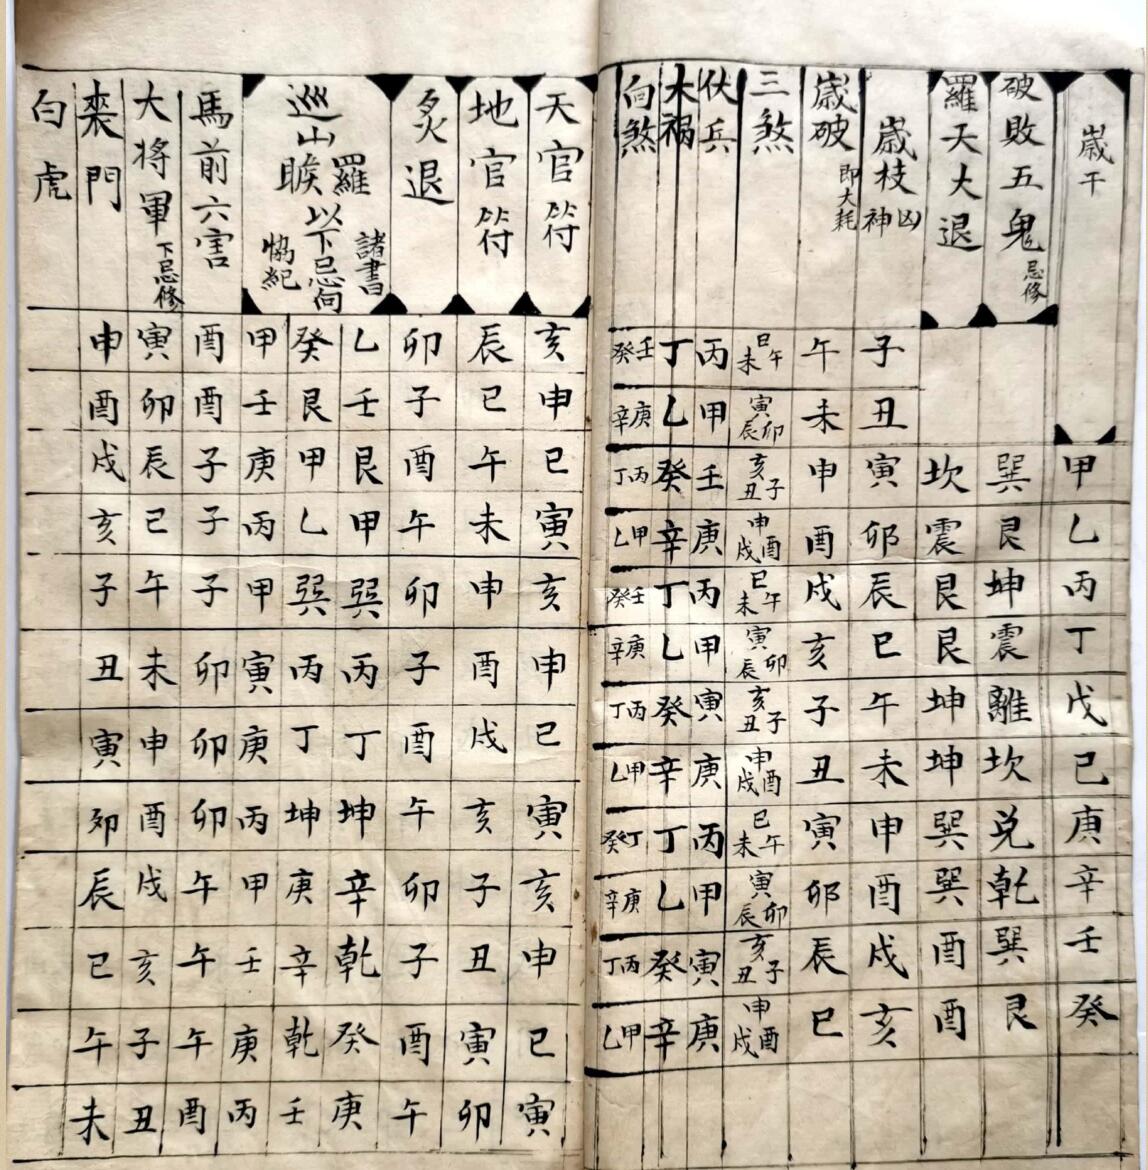 歲干 甲 乙 丙 丁 戊 己 庚 辛 壬 癸
破敗五鬼 忌修 巽 艮 坤 震 離 坎 兑 乾 巽 艮
羅天大退 坎 震 艮 艮 坤 坤 巽 巽 酉 酉
歲枝神 凶 子 丑 寅 卯 辰 巳 午 未 申 酉 戌 亥
歲破 即大耗 午 未 申 酉 戌 亥 子 丑 寅 卯 辰 巳
三煞 巳午未 寅卯辰 亥子丑 申酉戌 巳午未 寅卯辰 亥子丑 申酉戌 巳午未 寅卯辰 亥子丑 申酉戌
伏兵 丙 甲 壬 庚 丙 甲 寅 庚 丙 甲 寅 庚
大祸 丁 乙 癸 辛 丁 乙 癸 辛 丁 乙 癸 辛
向煞 壬癸 庚辛 丙丁 甲乙 壬癸 庚辛 丙丁 甲乙 丁癸 庚辛 丙丁 甲乙
天官符 亥 申 巳 寅 亥 申 巳 寅 亥 申 巳 寅
地官符 辰 巳 午 未 申 酉 戌 亥 子 丑 寅 卯
炙退 卯 子 酉 午 卯 子 酉 午 卯 子 酉 午
巡山羅睺 以下忌向
諸書 乙 壬 艮 甲 巽 丙 丁 坤 辛 乾 癸 庚
癸 艮 甲 乙 巽 丙 丁 坤 庚 辛 乾 壬
協紀 甲 壬 庚 丙 甲 寅 庚 丙 甲 壬 庚 丙
馬前六害 酉 酉 子 子 子 卯 卯 卯 午 午 午 酉
大将軍 下忌修 寅 卯 辰 巳 午 未 申 酉 戌 亥 子 丑
喪門 申 酉 戌 亥 子 丑 寅 卯 辰 巳 午 未
白虎